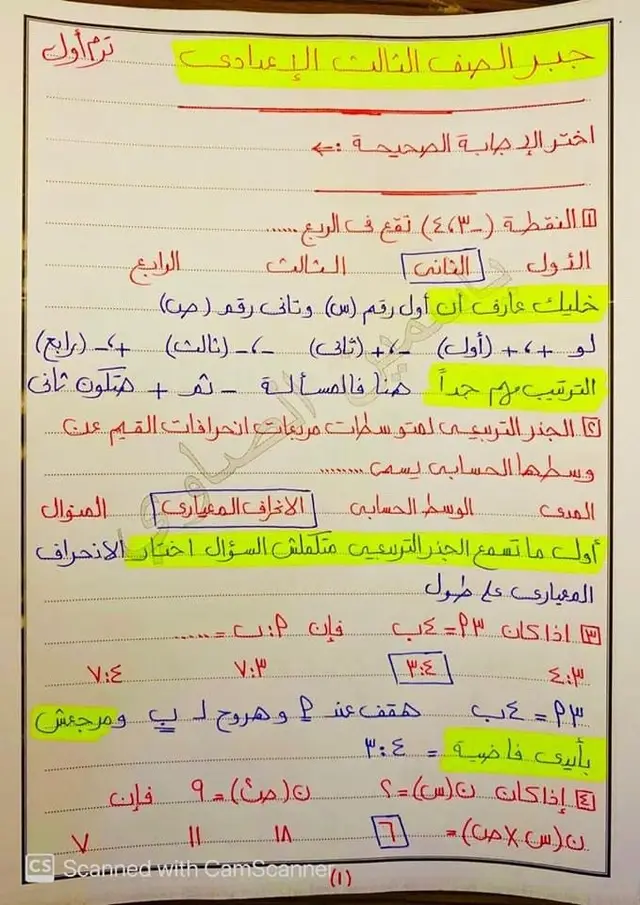 جبر الصف الثالث الإعدادى
ترم أول
اختر الإجابة الصحيحة :←
١ النقطة (-٣،٤) تقع فى الربع ......
الأول الثانى الثالث الرابع
خليك عارف ان أول رقم (س) وتانى رقم (ص)
لو +،+ (أول) -،+ (ثانى) -،- (ثالث) +،- (رابع)
الترتيب مهم جداً هنا فالمسألة - ثم + هتكون ثانى
٢ الجذر التربيعى لمتوسطات مربعات انحرافات القيم عن
وسطها الحسابى يسمى ........
المدى الوسط الحسابى الانحراف المعيارى المنوال
أول ما تسمع الجذر التربيعى متكملش السؤال اختار الانحراف
المعيارى على طول
٣ اذا كان ٣م = ٤ب فإن م:ب = ......
٤:٣ ٣:٤ ٧:٣ ٧:٤
٣م = ٤ب هقف عند م وهروح لـ ب ومرجعش
بأيدى فاضية = ٣:٤
٤ إذا كان ن(س)=٢ ن(ص٢)=٩ فإن
ن(س×ص)= ٦ ١٨ ١١ ٧
ياسمين الصاوى
(١)
CS Scanned with CamScanner